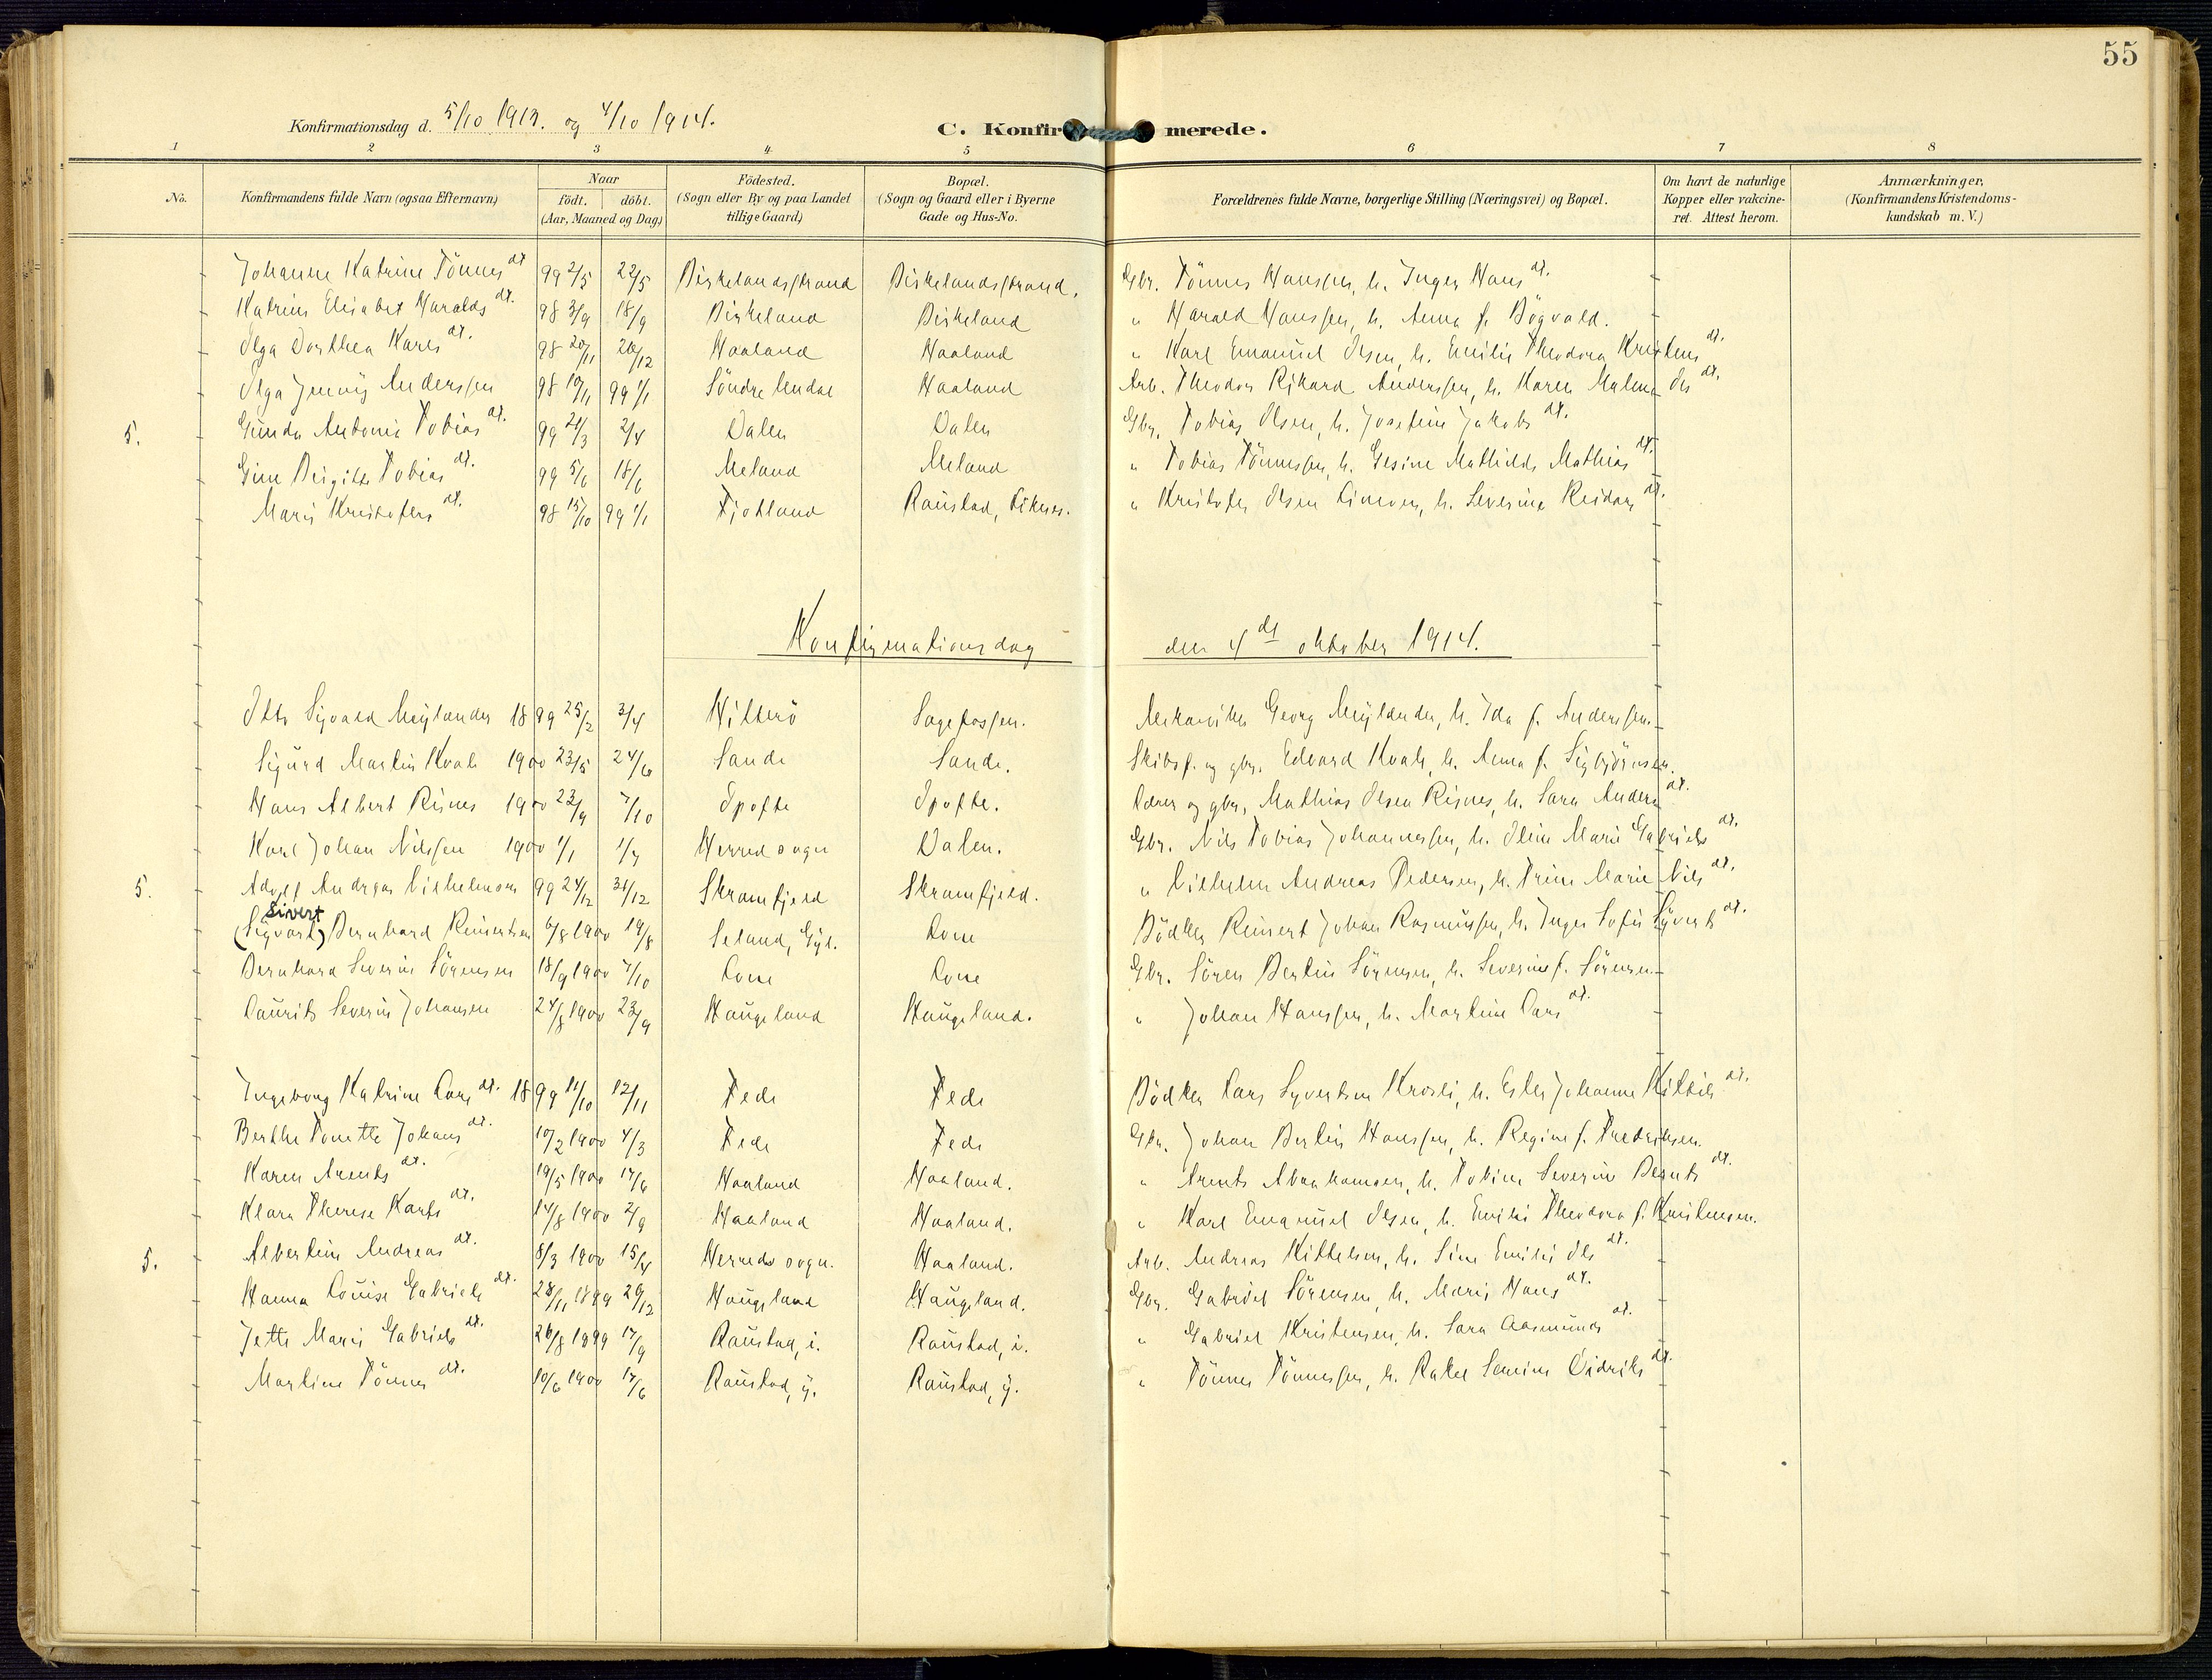 55
Konfirmationsdag d. 5/10 1913. og 4/10 1914.
C. Konfirmerede.
1 2 3 4 5 6 7 8
No. Konfirmandens fulde Navn (ogsaa Efternavn) Naar födt. döbt. (Aar, Maaned og Dag) Födested. (Sogn eller By og paa Landet tillige Gaard) Bopæl. (Sogn og Gaard eller i Byerne Gade og Hus-No. Forældrenes fulde Navne, borgerlige Stilling (Næringsvei) og Bopæl. Om havt de naturlige Kopper eller vakcineret. Attest herom. Anmærkninger. (Konfirmandens Kristendomskundskab m. V.)
Johanne Katrine Tönnes dt. 99 2/5 22/5 Birkelandsstrand Birkelandsstrand. Gbr. Tönnes Hanssen, h. Inger Hans dt.
Katrine Elisabet Haralds dt. 98 3/9 18/9 Birkeland Birkeland " Harald Hanssen, h. Anna f. Bögvald.
Olga Dorthea Karls dt. 98 20/11 26/12 Haaland Haaland " Karl Emanuel Olsen, h. Emilie Theodora Kristens dt.
Olga Jenny Anderssen 98 19/11 99 1/1 Söndre Undal Haaland Arb. Theodor Rikard Anderssen, h. Karen Malene Ols dt.
5. Gunda Antonie Tobias dt. 99 21/3 2/4 Dalen Dalen Gbr. Tobias Olsen, h. Josefine Jakobs dt.
Gine Birgitte Tobias dt. 99 5/6 18/6 Meland Meland " Tobias Tönnessen, h. Gesine Mathilde Mathias dt.
Marie Kristofers dt. 98 15/10 99 1/1 Fjotland Raustad, " Kristofer Olsen h. Severine Reidars dt.
Konfirmationsdag den 4de oktober 1914.
Otto Sigvald Meylander 1899 25/2 3/4 Hitterö Sagefossen. Mekaniker Georg Meylander, h. Ida f. Anderssen
Sigurd Martin Kvale 1900 23/5 24/6 Sande Sande. Skibsf. og gbr. Edvard Kvale, h. Anna f. Sigbjörnsen.
Hans Albert Risnes 1900 23/9 7/10 Opofte Opofte. Lærer og gbr. Mathias Olsen Risnes, h. Sara Anders dt.
Karl Johan Nilssen 1900 1/1 1/4 Herred sogn Dalen. Gbr. Nils Tobias Johannessen, h. Oline Marie Gabriels dt.
5. Adolf Andreas Vilhelmsen 99 24/12 31/12 Skramfjeld Skramfjeld. " Vilhelm Andreas Pedersen, h. Trine Marie Nils dt.
Sivert
(Sigvart) Bernhard Reinertsen 6/8 1900 19/8 Seland, Gyl. Lone Bödker Reinert Johan Rasmussen, h. Inger Sofie Syverts dt.
Bernhard Severin Sörensen 18/9 1900 7/10 Lone Lone Gbr. Sören Bertin Sörensen, h. Severine f. Sörensen
Laurits Severin Johansen 24/8 1900 23/9 Haugeland Haugeland. " Johan Hanssen, h. Martine Lars dt.
Ingeborg Katrine Lars dt. 1899 11/10 12/11 Fede Fede Bödker Lars Syvertsen Krosli, h. Ester Johanne Kittils dt.
Berthe Tonette Johans dt. 10/2 1900 4/3 Fede Fede Gbr. Johan Bertin Hanssen, h. Regine f. Fredriksen.
Karen Arents dt. 19/5 1900 17/6 Haaland Haaland. " Arents Abrahamsen, h. Tobine Severine Bernts dt.
Klara Therese Karls dt. 14/8 1900 2/9 Haaland Haaland. " Karl Emanuel Olsen, h. Emilie Theodora f. Kristensen.
5. Albertine Andreas dt. 8/3 1900 15/4 Herreds sogn. Haaland. Arb. Andreas Kittelsen, h. Sine Emilie Ols dt.
Hanna Louise Gabriels dt. 28/11 1899 29/12 Haugeland Haugeland. Gbr. Gabriel Sörensen, h. Marie Hans dt.
Jette Marie Gabriels dt. 26/8 1899 17/9 Raustad, i. Raustad, i. " Gabriel Kristensen, h. Sara Aasmunds dt.
Martine Tönnes dt. 10/6 1900 17/6 Raustad, y. Raustad, y. " Tönnes Tönnessen, h. Rakel Samine Didriks dt.